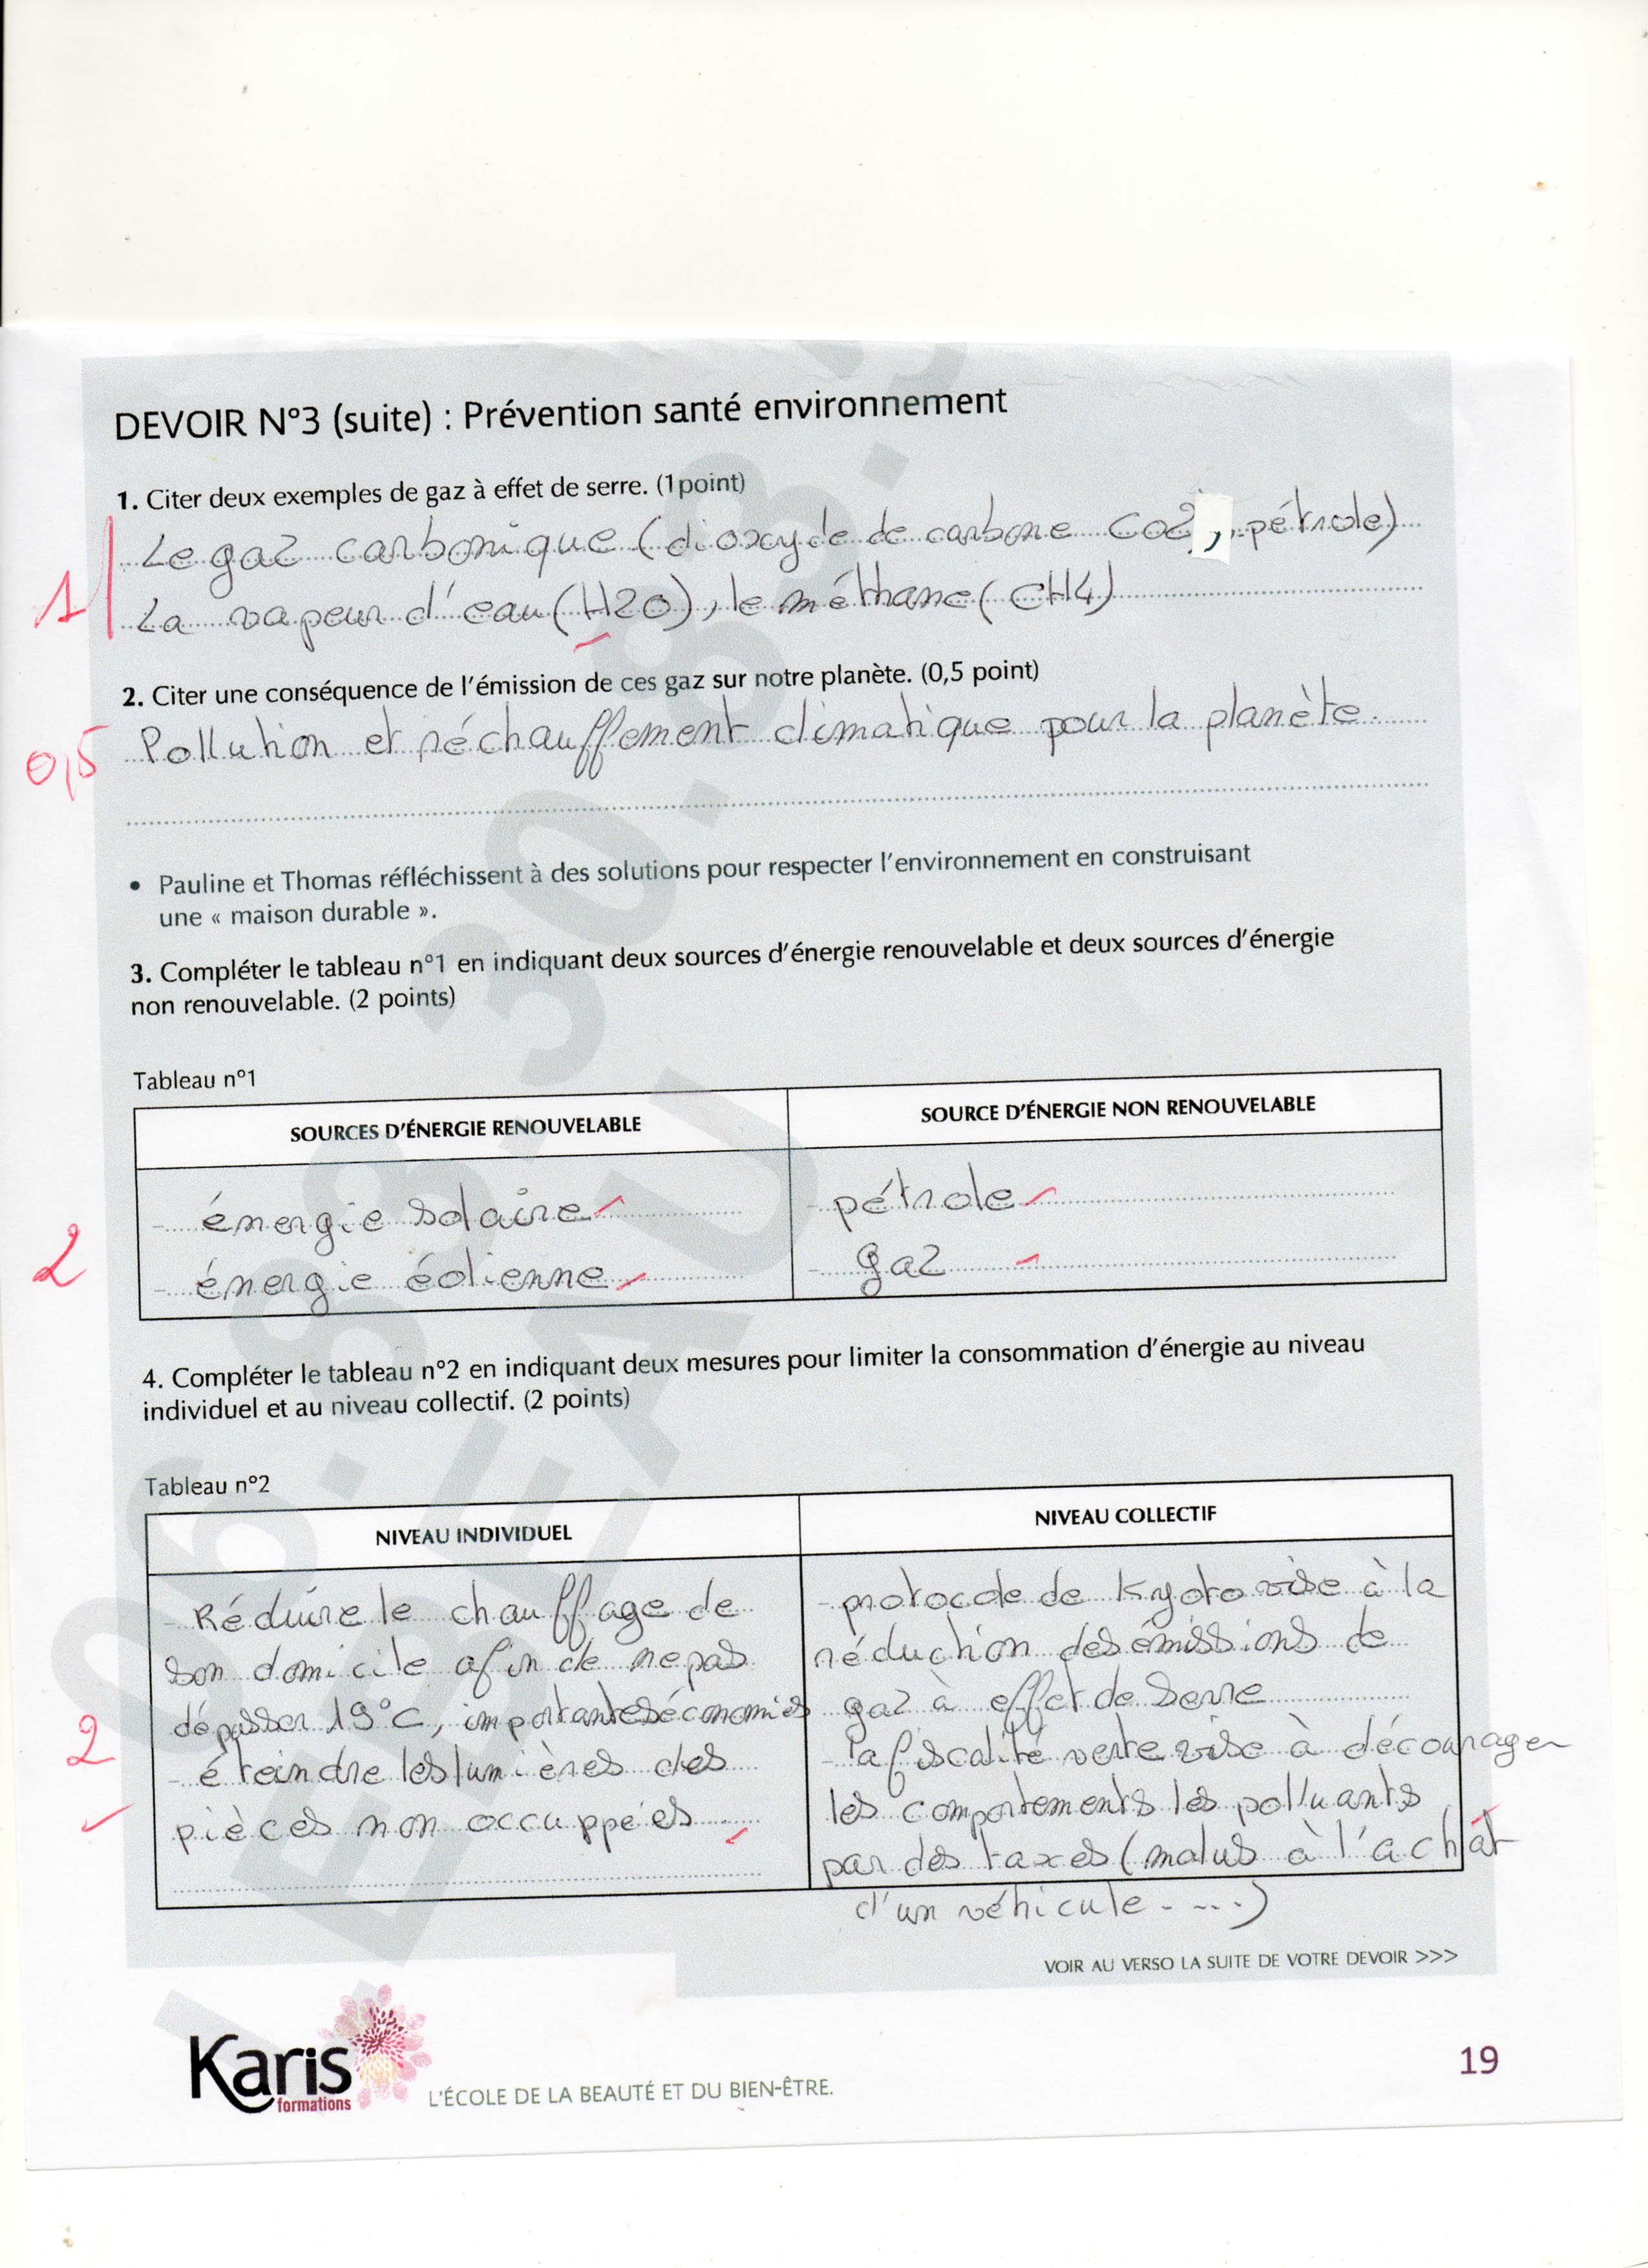 DEVOIR N°3 (suite) : Prévention santé environnement
1. Citer deux exemples de gaz à effet de serre. (1point)
Le gaz carbonique (dioxyde de carbone Co2, , pétrole)
1
La vapeur d'eau (H2O), le méthane (CH4)
2. Citer une conséquence de l'émission de ces gaz sur notre planète. (0,5 point)
0,5
Pollution et réchauffement climatique pour la planète.
• Pauline et Thomas réfléchissent à des solutions pour respecter l'environnement en construisant
une « maison durable ».
3. Compléter le tableau n°1 en indiquant deux sources d'énergie renouvelable et deux sources d'énergie
non renouvelable. (2 points)
Tableau n°1
SOURCES D'ÉNERGIE RENOUVELABLE
SOURCE D'ÉNERGIE NON RENOUVELABLE
- énergie solaire
- énergie éolienne
- pétrole
- gaz
2
4. Compléter le tableau n°2 en indiquant deux mesures pour limiter la consommation d'énergie au niveau
individuel et au niveau collectif. (2 points)
Tableau n°2
NIVEAU INDIVIDUEL
NIVEAU COLLECTIF
- Réduire le chauffage de
son domicile afin de ne pas
dépasser 19°C, importantes économies
- éteindre les lumières des
pièces non occuppées
2
- protocole de Kyoto vise à la
réduction des émissions de
gaz à effet de serre
- la fiscalité verte vise à décourager
les comportements les polluants
par des taxes (malus à l'achat
d'un véhicule - ....)
VOIR AU VERSO LA SUITE DE VOTRE DEVOIR >>>
Karis
formations
L'ÉCOLE DE LA BEAUTÉ ET DU BIEN-ÊTRE.
19